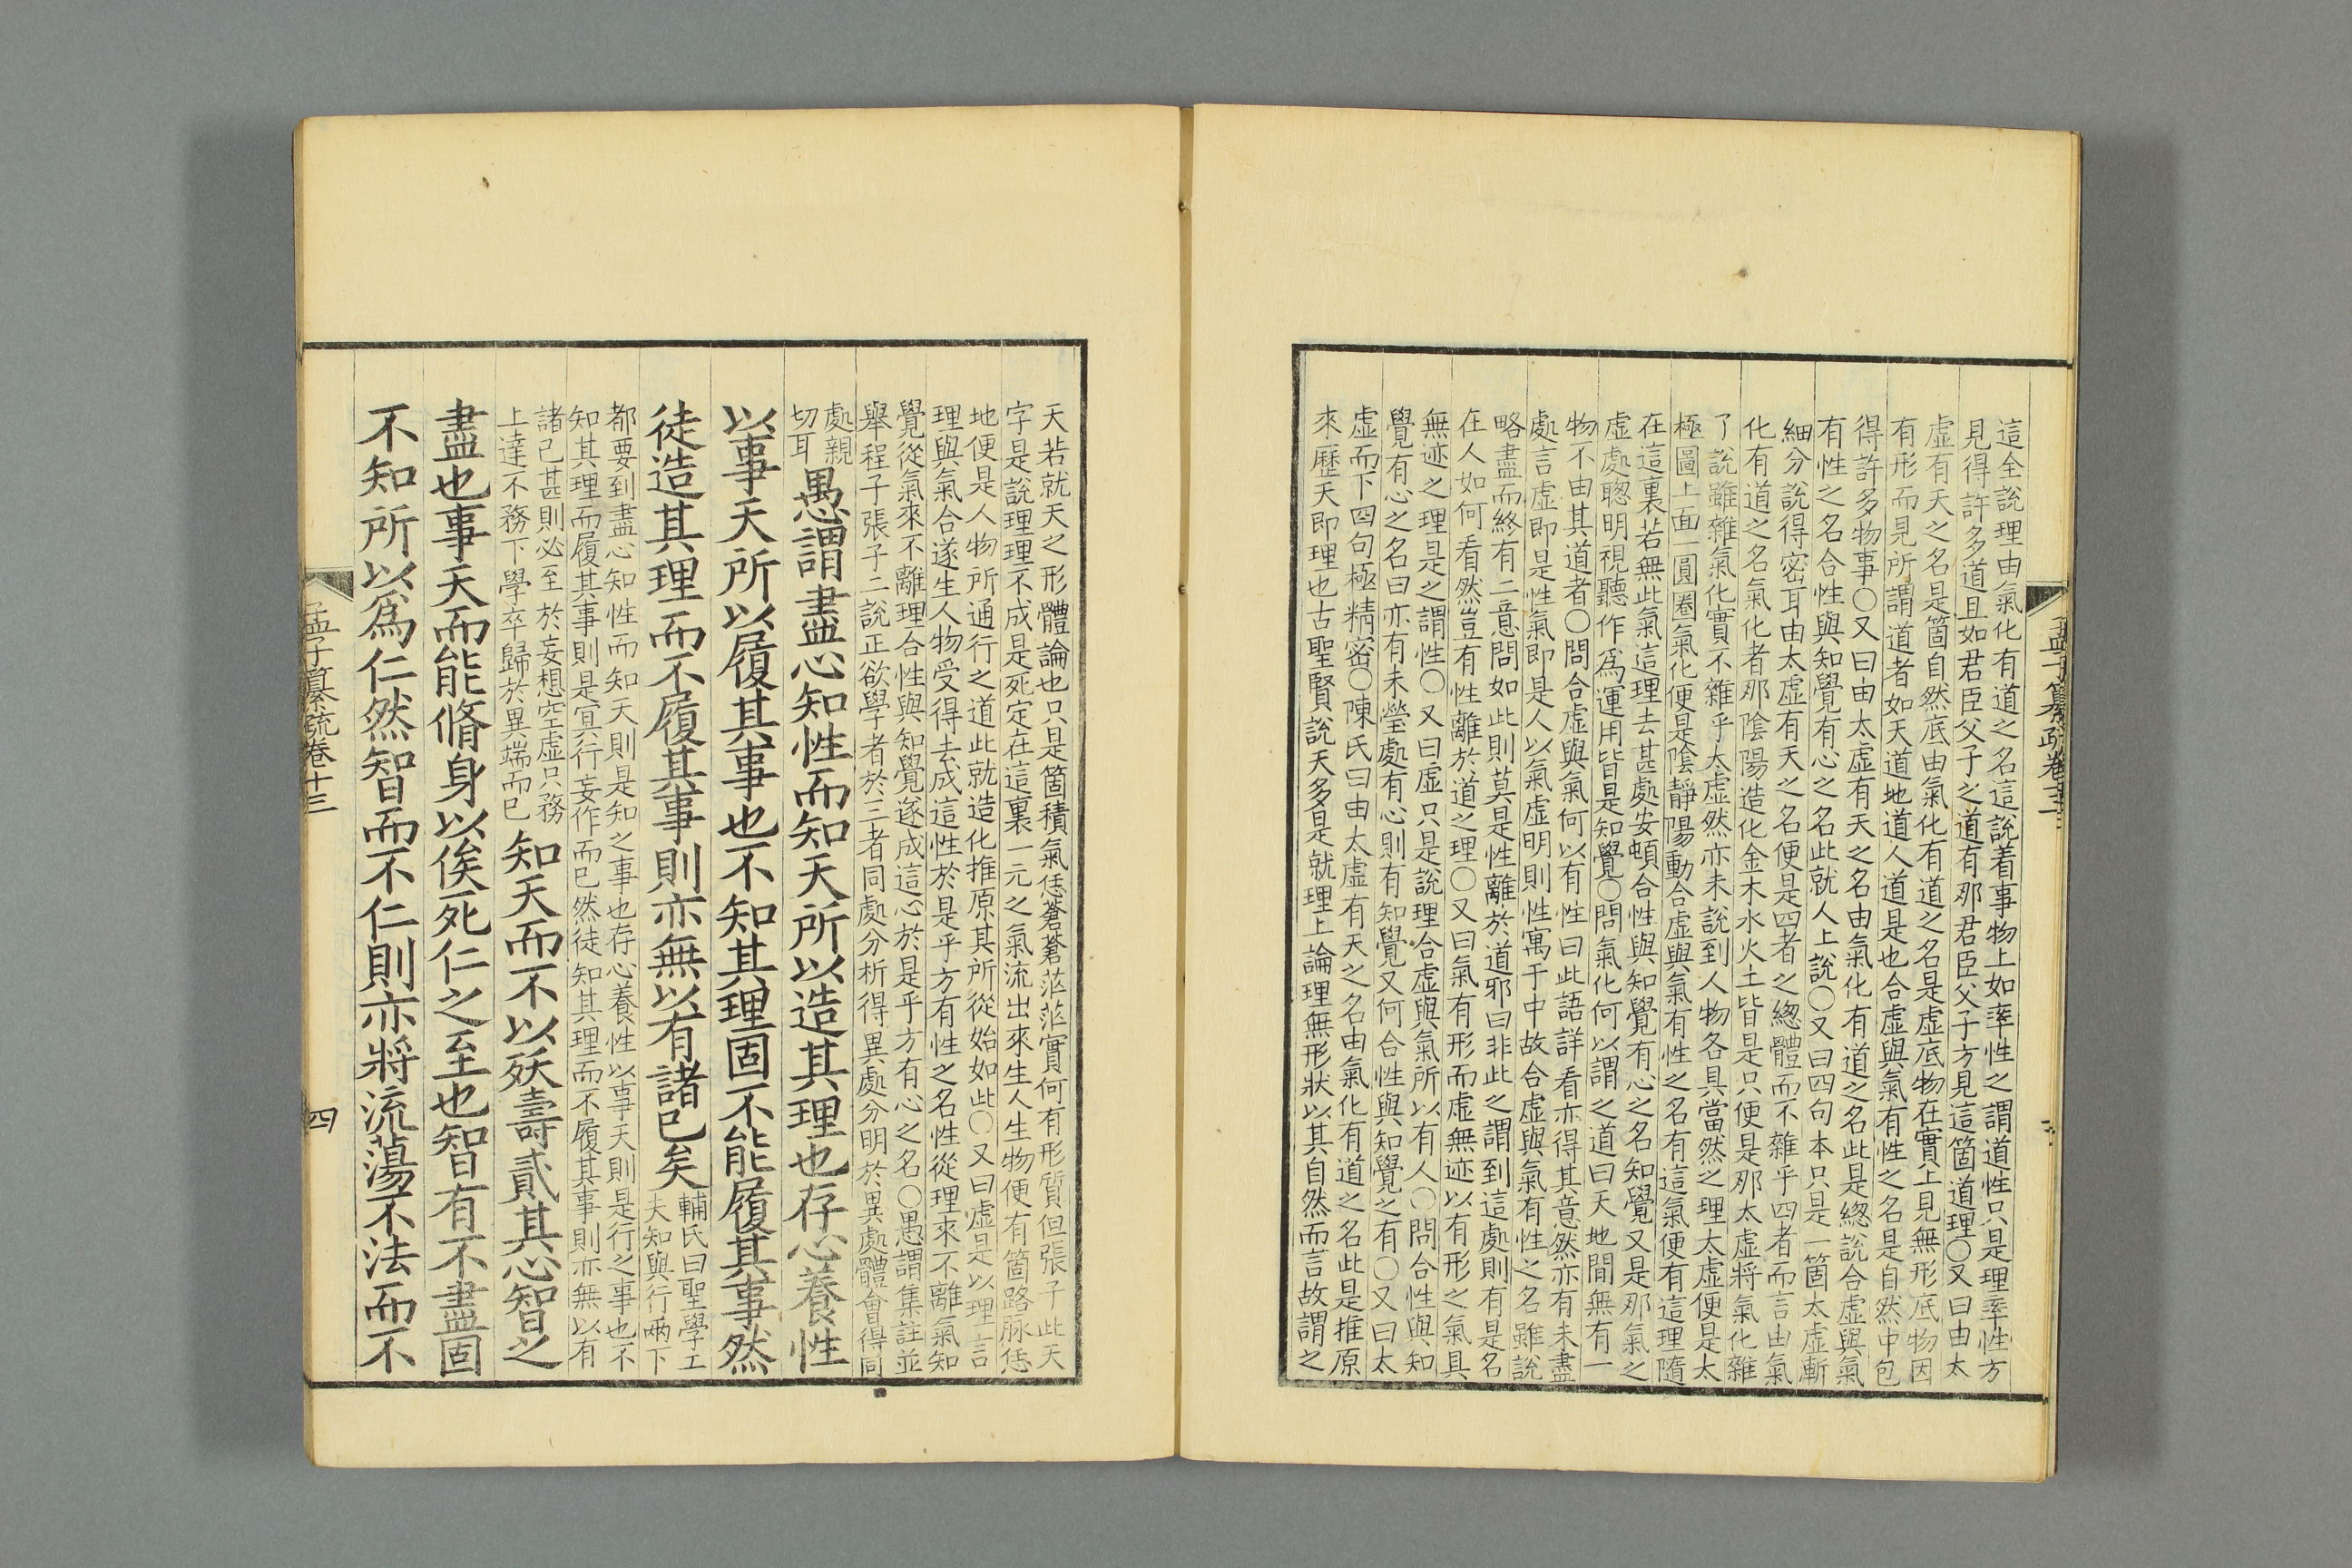 孟子纂疏卷十三
這全說理由氣化有道之名這說着事物上如率性之謂道性只是理率性方
見得許多道且如君臣父子之道有那君臣父子方見這箇道理〇又曰由太
虛有天之名是箇自然底由氣化有道之名是虛底物在實上見無形底物因
有形而見所謂道者如天道地道人道是也合虛與氣有性之名是自然中包
得許多物事〇又曰由太虛有天之名由氣化有道之名此是緫說合虛與氣
有性之名合性與知覺有心之名此就人上說〇又曰四句本只是一箇太虛漸
細分說得密耳由太虛有天之名便是四者之緫體而不雜乎四者而言由氣
化有道之名氣化者那陰陽造化金木水火土皆是只便是那太虛將氣化雜
了說雖雜氣化實不雜乎太虛然亦未說到人物各具當然之理太虛便是太
極圖上面一圓圈氣化便是陰靜陽動合虛與氣有性之名有這氣便有這理隨
在這裏若無此氣這理去甚處安頓合性與知覺有心之名知覺又是那氣之
虛處聰明視聽作爲運用皆是知覺〇問氣化何以謂之道曰天地間無有一
物不由其道者〇問合虛與氣何以有性曰此語詳看亦得其意然亦有未盡
處言虛即是性氣即是人以氣虛明則性寓于中故合虛與氣有性之名雖說
略盡而終有二意問如此則莫是性離於道邪曰非此之謂到這處則有是名
在人如何看然豈有性離於道之理〇又曰氣有形而虛無迹以有形之氣具
無迹之理是之謂性〇又曰虛只是說理合虛與氣所以有人〇問合性與知
覺有心之名曰亦有未瑩處有心則有知覺又何合性與知覺之有〇又曰太
虛而下四句極精密〇陳氏曰由太虛有天之名由氣化有道之名此是推原
來歷天即理也古聖賢說天多是就理上論理無形狀以其自然而言故謂之
天若就天之形體論也只是箇積氣恁蒼蒼茫茫實何有形質但張子此天
字是說理理不成是死定在這裏一元之氣流出來生人生物便有箇路脉恁
地便是人物所通行之道此就造化推原其所從始如此〇又曰虛是以理言
理與氣合遂生人物受得去成這性於是乎方有性之名性從理來不離氣知
覺從氣來不離理合性與知覺遂成這心於是乎方有心之名〇愚謂集註並
舉程子張子二說正欲學者於三者同處分析得異處分明於異處體會得同
處親
切耳
愚謂盡心知性而知天所以造其理也存心養性
以事天所以履其事也不知其理固不能履其事然
徒造其理而不履其事則亦無以有諸己矣
輔氏曰聖學工
夫知與行兩下
都要到盡心知性而知天則是知之事也存心養性以事天則是行之事也不
知其理而履其事則是冥行妄作而已然徒知其理而不履其事則亦無以有
諸己甚則必至於妄想空虛只務
上達不務下學卒歸於異端而已
知天而不以殀壽貳其心智之
盡也事天而能脩身以俟死仁之至也智有不盡固
不知所以爲仁然智而不仁則亦將流蕩不法而不
孟子纂疏卷十三
四